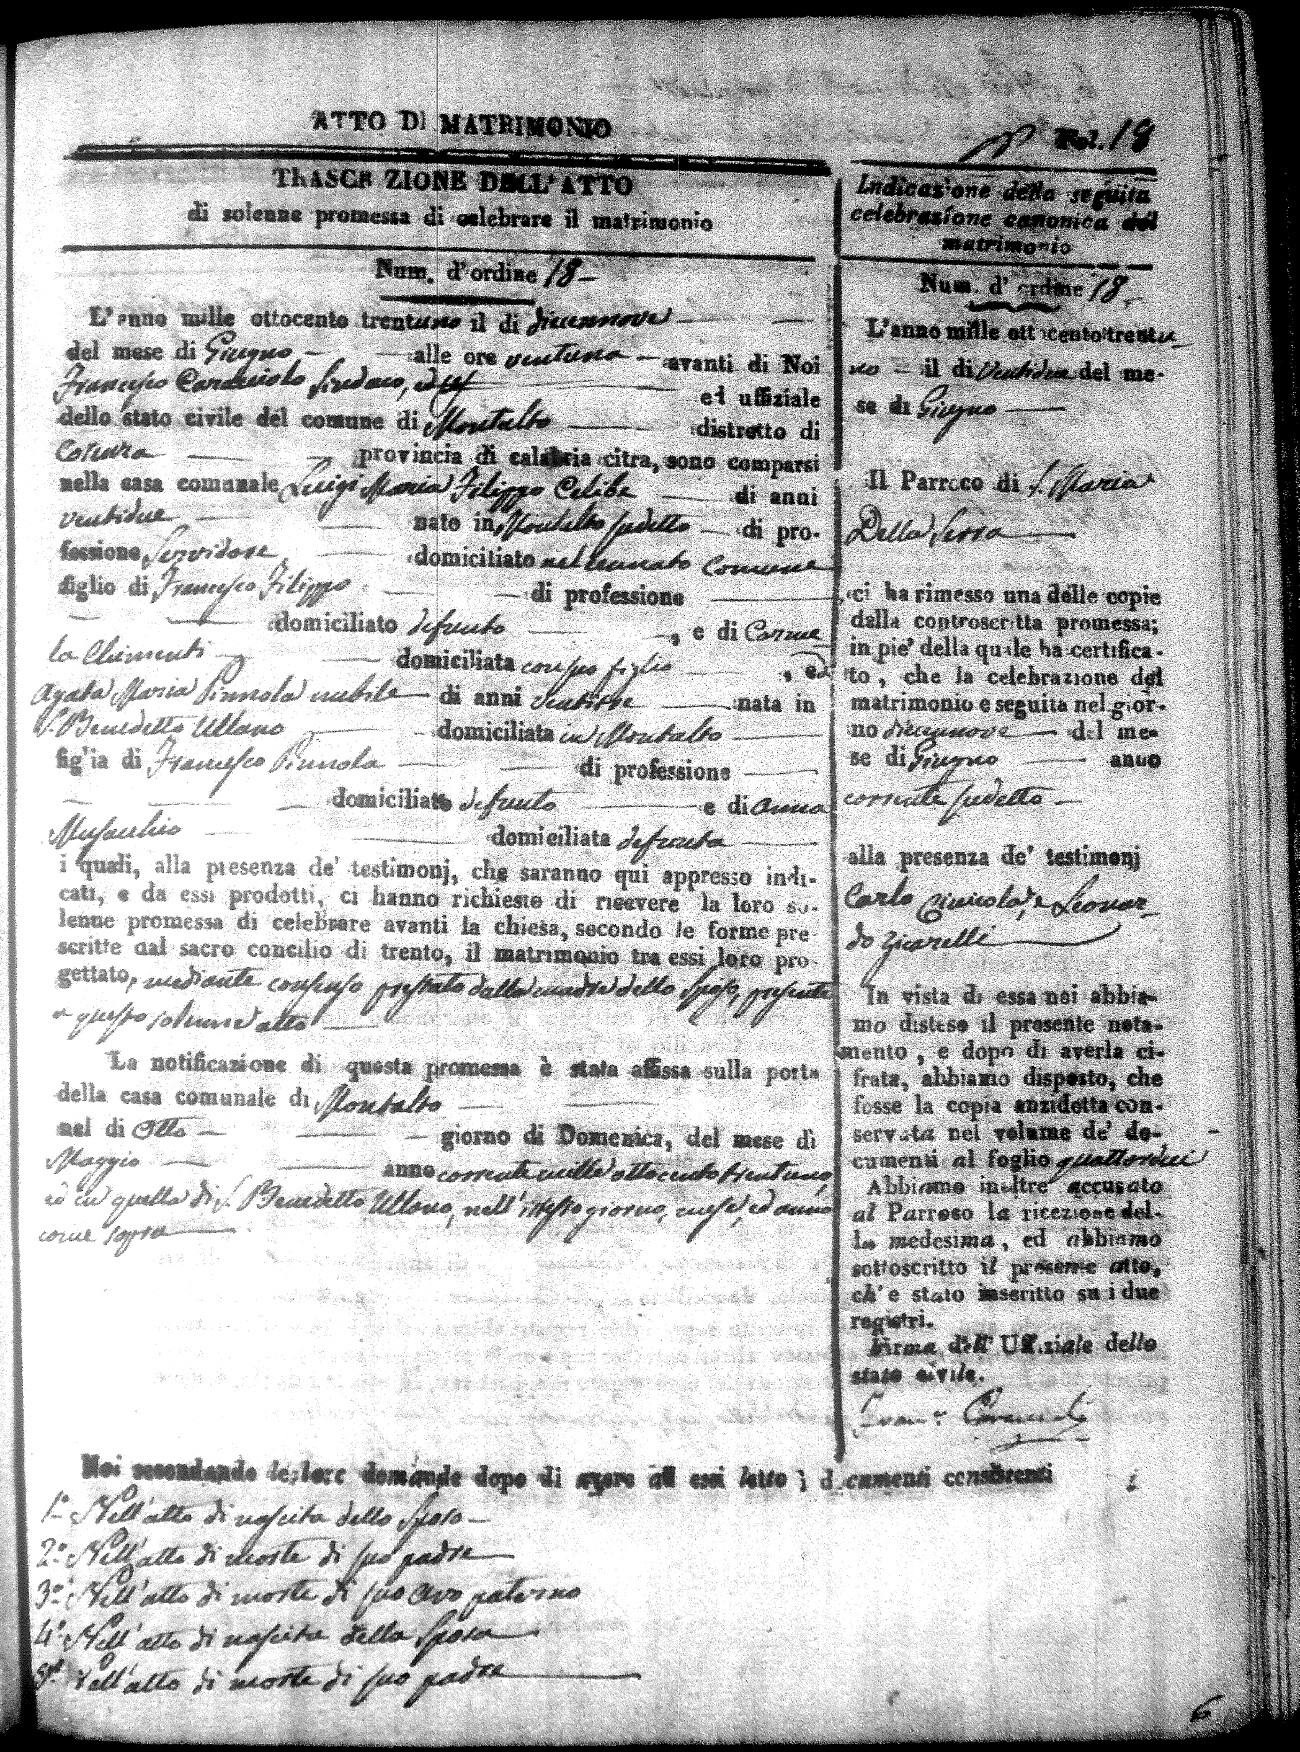 ATTO DI MATRIMONIO
Fol. 18
TRASCRIZIONE DELL'ATTO
di solenne promessa di celebrare il matrimonio
Num. d'ordine 18
L'anno mille ottocento trentuno il di diecennove
del mese di Giugno alle ore ventuna avanti di Noi
Francesco Caracciolo Sindaco, ed
ed uffiziale
dello stato civile del comune di Montalto distretto di
Cosenza provincia di calabria citra, sono comparsi
nella casa comunale Luigi Maria Filippo Celibe di anni
ventidue nato in Montalto sudetto di pro-
fessione Servidore domiciliato nel comune
figlio di Francesco Filippo di professione
domiciliato defunto , e di Carme
la Chimenti domiciliata con suo figlio , ed
Agata Maria Pinnola nubile di anni nata in
S. Benedetto Ullano domiciliata in Montalto
figlia di Francesco Pinnola di professione
domiciliato defunto e di Anna
Musacchio domiciliata defunta
i quali, alla presenza de' testimonj, che saranno qui appresso indi-
cati, e da essi prodotti, ci hanno richiesto di ricevere la loro so-
lenne promessa di celebrare avanti la chiesa, secondo le forme pre
scritte dal sacro concilio di trento, il matrimonio tra essi loro pro-
gettato, mediante consenso prestato dalla madre dello Sposo, presente
a questo solenne atto
La notificazione di questa promessa è stata affissa sulla porta
della casa comunale di Montalto
nel di Otto giorno di Domenica, del mese di
Maggio anno corrente mille ottocento trentuno,
ed in quella di S. Benedetto Ullano, nell'istesso giorno, mese, ed anno
come sopra
Indicazione della seguita
celebrazione canonica del
matrimonio
Num. d'ordine 18
L'anno mille ottocento trentu
no il di Ventidue del me-
se di Giugno
Il Parroco di S. Maria
Della Serra
ci ha rimesso una delle copie
dalla controscritta promessa;
in pie' della quale ha certifica-
to, che la celebrazione del
matrimonio e seguita nel gior-
no diecennove del me-
se di Giugno anno
corrente sudetto
alla presenza de' testimonj
Carlo e Leonar
do Zicarelli
In vista di essa noi abbia-
mo disteso il presente nota-
mento, e dopo di averla ci-
frata, abbiamo disposto, che
fosse la copia anzidetta con-
servata nel volume de' do-
cumenti al foglio quattordici
Abbiamo inoltre accusato
al Parroco la ricezione del-
la medesima, ed abbiamo
sottoscritto il presente atto,
ch'e stato inscritto su i due
registri.
Firma dell' Uffiziale dello
stato civile.
Fran.co Caracciolo
Noi secondando le loro domande dopo di avere ad essi letto i documenti consistenti
1º Nell'atto di nascita dello Sposo
2º Nell'atto di morte di suo padre
3º Nell'atto di morte di suo avo paterno
4º Nell'atto di nascita della Sposa
5º Nell'atto di morte di suo padre
6